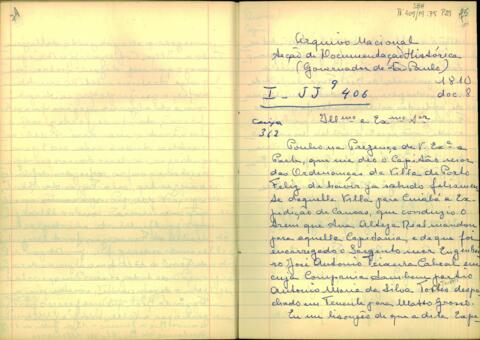 Arquivo Nacional
Secção de Documentação Histórica
(Governador de São Paulo)
1810
I - JJ 9 406
doc. 8
Caixa
362
Illmo e Exmo Snr
Ponho na Prezença de V. Exa a
Parte, que me deo o Capitão mor
das Ordenanças da Villa de Porto
Feliz de haver já sahido felismen
te daquella Villa para Cuiabá a Ex
pedição de Canoas, que conduzio o
trem que Sua Alteza Real mandou
para aquella Capitania, e de que foi
encarregado o Sargento mor Engenhei
ro José Antonio Teixeira Cabral em
cuja Companhia tambem partio
Antonio Maria da Silva Torres despa
chado em Tenente para Matto Grosso.
Eu me lisongêo de que a dita Expe